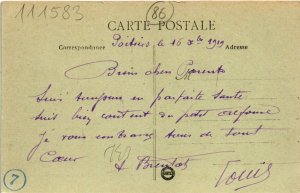 111583
86
CARTE POSTALE
Correspondance
Adresse
Poitiers le 16 Xbre 1919
Bien chers Parents
Suis toujours en parfaite santé
suis bien content du petit
Je vous embrasse tous de tout
Coeur
à Bientôt
Louis
7